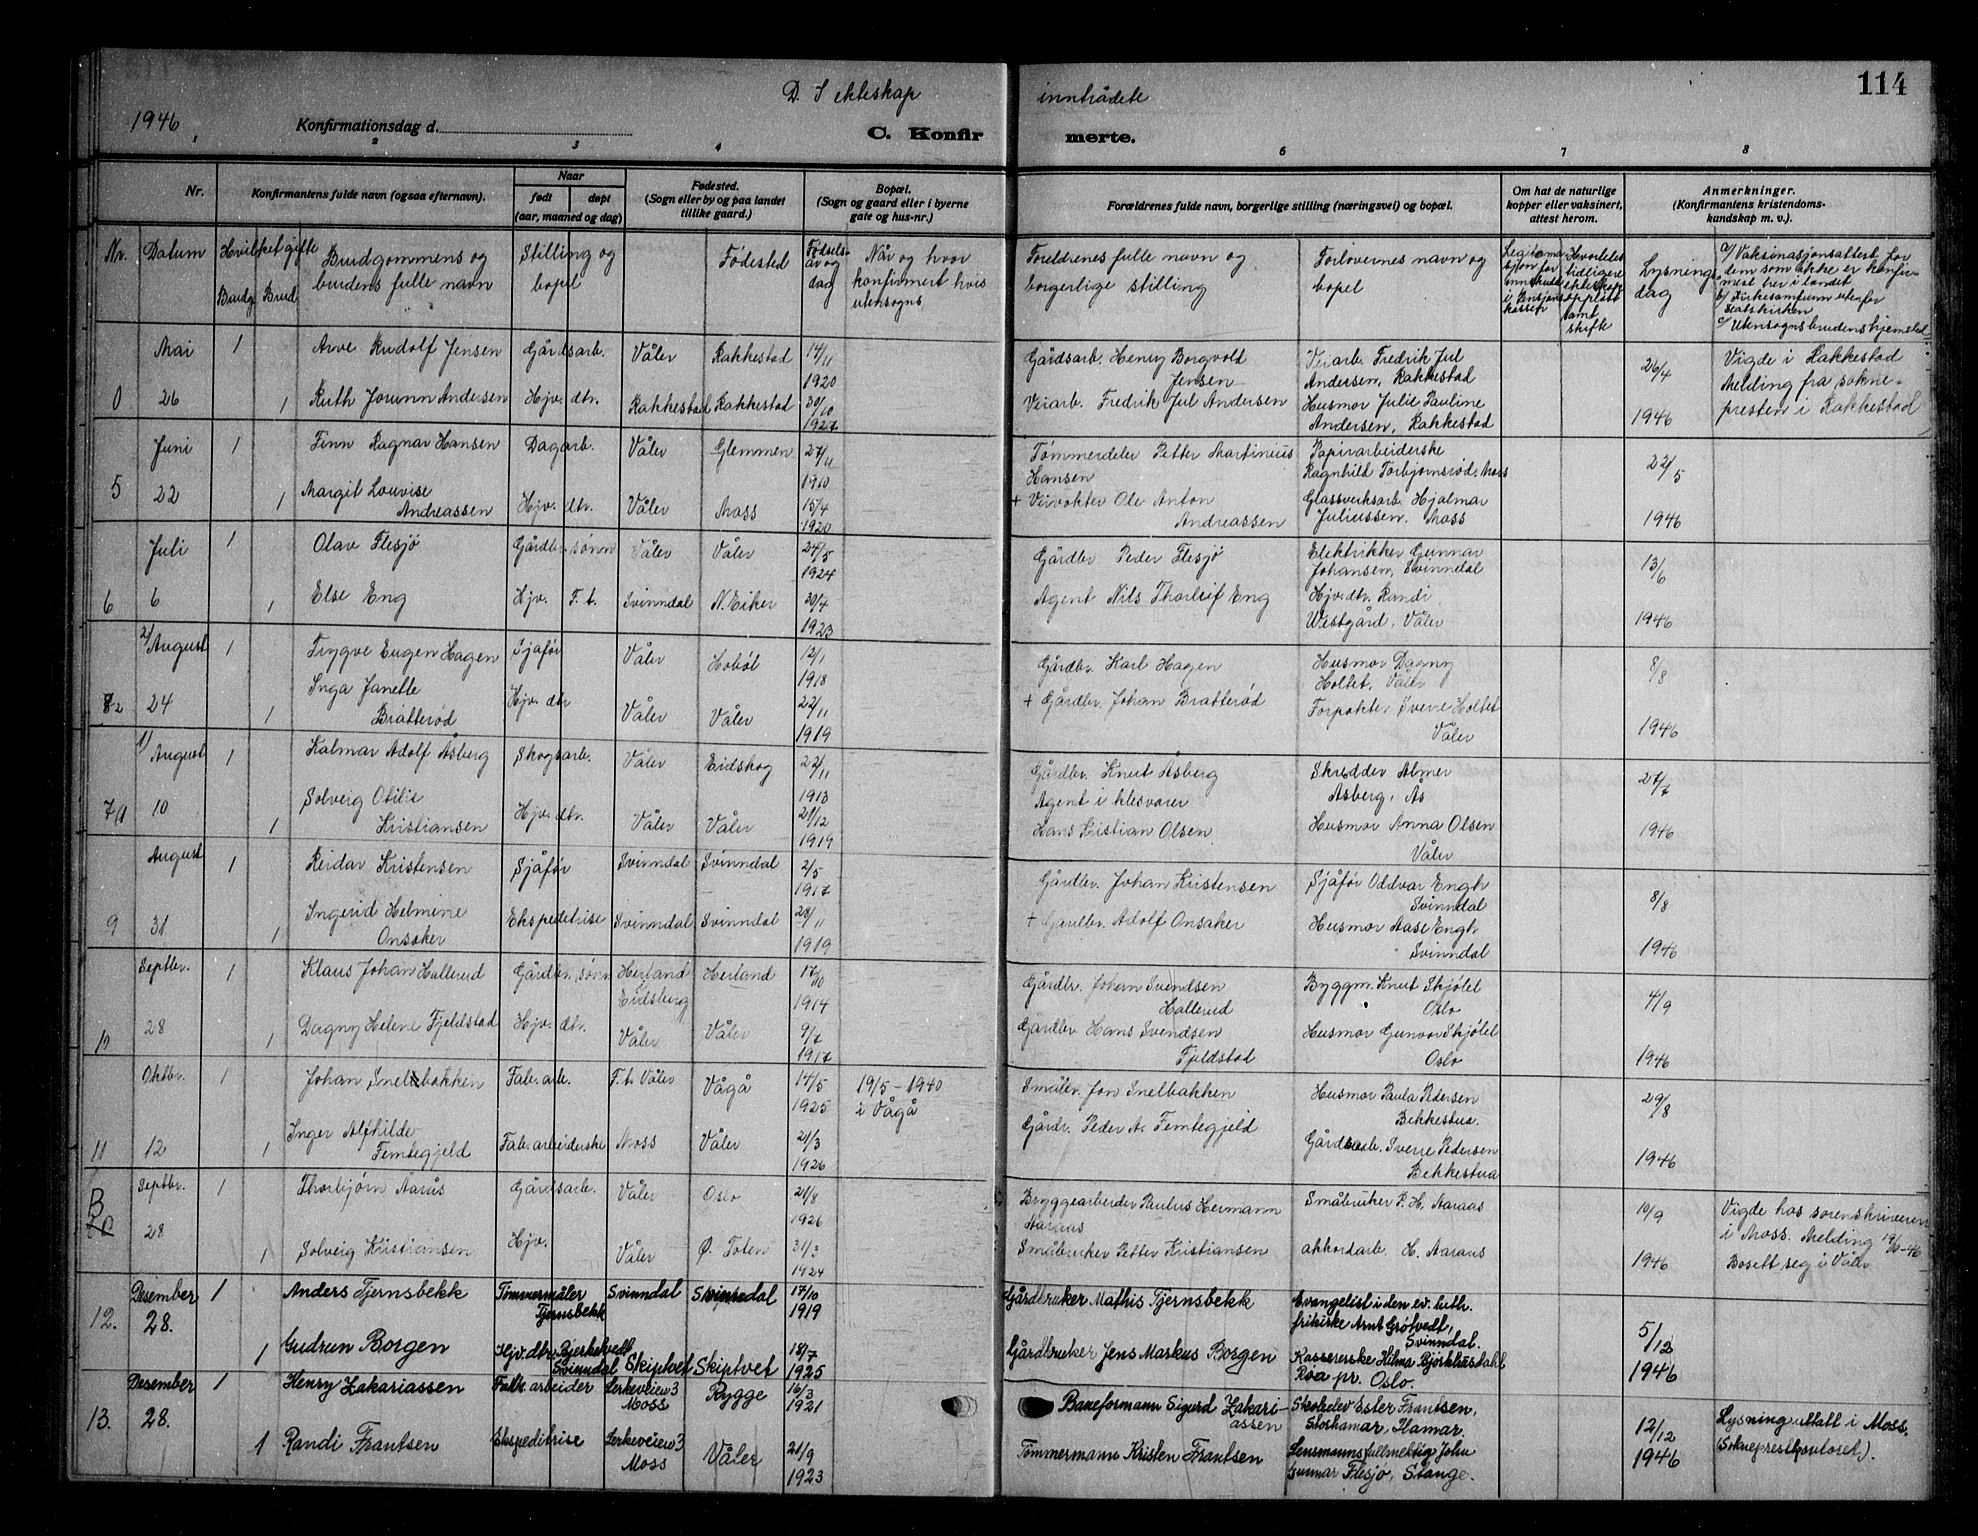 D. I ekteskap inntrådete
114
1946 Konfirmationsdag d. C. Konfirmerte.
1 2 3 4 6 7 8
Nr. Konfirmantens fulde navn (ogsaa efternavn). Naar født døpt (aar, maaned og dag) Fødested. (Sogn eller by og paa landet tillike gaard.) Bopæl. (Sogn og gaard eller i byerne gate og hus-nr.) Forældrenes fulde navn, borgerlige stilling (næringsvei) og bopæl. Om hat de naturlige kopper eller vaksinert, attest herom. Anmerkninger. (Konfirmantens kristendomskundskap m. v.).
Nr. Datum Hvilket gifte Brudg. Brud Brudgommens og brudens fulle navn Stilling og bopel Fødested Fødselsår og dag Når og hvor konfirmert hvis utensogns Foreldrenes fulle navn og borgerlige stilling Forlovernes navn og bopel Lysningsdag
a/ Vaksinasjonsattest for dem som ikke er konfirmert her i landet
b/ Kirkesamfunn utenfor Statskirken
c/ Utensognsbrudens hjemsted
Mai 1 Arve Rudolf Jensen Gårdsarb. Våler Rakkestad 14/11 1920 Gårdsarb. Henry Borgvold Jensen Veiarb. Fredrik Jul Andersen, Rakkestad 26/4 Vigde i Rakkestad
0 26 1 Ruth Jorunn Andersen Hjv. dtr. Rakkestad Rakkestad 30/10 1927 Veiarb. Fredrik Jul Andersen Husmor Julie Pauline Andersen, Rakkestad 1946 Melding fra soknepresten i Rakkestad
Juni 1 Finn Ragnar Hansen Dagarb. Våler Glemmen 27/11 1910 Tømmerdeler Petter Martinius Hansen Papirarbeiderske Ragnhild Torbjørnsrød, Moss 22/5
5 22 1 Margit Louvise Andreassen Hjv. dtr. Våler Moss 15/4 1920 + Veivokter Ole Anton Andreassen Glassverksarb. Hjalmar Juliussen. Moss 1946
Juli 1 Olav Flesjø Gårdbr. sønn Våler Våler 24/5 1924 Gårdbr. Peder Flesjø Elektrikker Gunnar Johansen, Svinndal 13/6
6 6 1 Else Eng Hjv. F. t. Svinndal N. Eiker 30/7 1923 Agent Nils Thorleif Eng Hjv. dtr. Randi Westgård, Våler 1946
2/ August 1 Trygve Eugen Hagen Sjåfør Våler Hobøl 12/1 1918 Gårdbr. Karl Hagen Husmor Dagny Holtet, Våler 8/8
82 24 1 Inga Janette Bratterød Hjv. dtr Våler Våler 22/11 1919 + Gårdbr. Johan Bratterød Forpakter Sverre Holtet Våler 1946
1/ August 1 Kalmar Adolf Åsberg Skogsarb. Våler Eidskog 22/11 1913 Gårdbr. Knut Åsberg Skredder Almer Åsberg, Ås 27/7
7 10 1 Solveig Otilie Kristiansen Hjv. dtr. Våler Våler 21/12 1919 Agent i klesvarer Hans Kristian Olsen Husmor Anna Olsen Våler 1946
August 1 Reidar Kristensen Sjåfør Svinndal Svinndal 2/5 1917 Gårdbr. Johan Kristensen Sjåfør Oddvar Engh Svinndal 8/8
9 31 1 Ingerid Helmine Onsaker Ekspeditrise Svinndal Svinndal 28/11 1919 + Gårdbr. Adolf Onsaker Husmor Aase Engh Svinndal 1946
Septbr. 1 Klaus Johan Hallerud Gårdbr. sønn Herland Eidsberg Herland 17/10 1914 Gårdbr. Johan Svendsen Hallerud Byggm. Knut Skjølel Oslo 4/9
10 28 1 Dagny Helene Fjeldstad Hjv. dtr. Våler Våler 9/7 1917 Gårdbr Hans Svendsen Fjeldstad Husmor Gunvor Skjølel Oslo 1946
Oktbr. 1 Johan Snelbakken Fab. arb. F. t. Våler Vågå 14/5 1925 19/5 - 1940 i Vågå Småbr. Jon Snelbakken Husmor Paula Pedersen Bekkestua. 29/8
11 12 1 Inger Alfhilde Femtegjeld Fab. arbeiderske Moss Våler 21/3 1926 Gårdr. Peder A. Femtegjeld Gårdsarb. Sverre Pedersen Bekkestua 1946
B Septbr. 1 Thorbjørn Aarås Gårdsarb. Våler Oslo 21/8 1926 Bryggearbeider Paulus Hermann Aaraas Småbruker P. H. Aaraas 10/9 Vigde hos sorenskriveren
28 1 Solveig Kristiansen Hjv. Våler Ø. Toten 31/3 1924 Småbruker Petter Kristiansen akkordarb. H. Aaraas 1946 i Moss. Melding Bosett seg i Våler
Desember 1 Anders Tjernsbekk Tømmermåler Tjernsbekk Svinndal Svinndal 17/10 1919 Gårdbruker Mathis Tjernsbekk Evangelist i den ev. luth. frikirke Arnt Grøtvedt, Svinndal. 5/12
12. 28. 1 Gudrun Borgen Hjv. dtr. Bjerkekvedt Svinndal Skiptvet Skiptvet 18/7 1925 Gårdbruker Jens Markus Borgen Kassererske Hilma Bjørkhustahl Røa pr. Oslo. 1946
Desember 1 Henry Zakariassen Fabr. arbeider Lerkeveien 3 Moss Rygge 16/3 1921 Baneformann Sigurd Zakariassen Skoleelev Ester Frantsen, Storhamar, Hamar. 12/12 Lysning uttatt i Moss.
13. 28. 1 Randi Frantsen Ekspeditrise Lerkeveien 3 Moss Våler 21/9 1923 Tømmermann Kristen Frantsen Lensmannsfullmektig John Gunnar Flesjø, Stange. 1946 (Sokneprestkontoret).